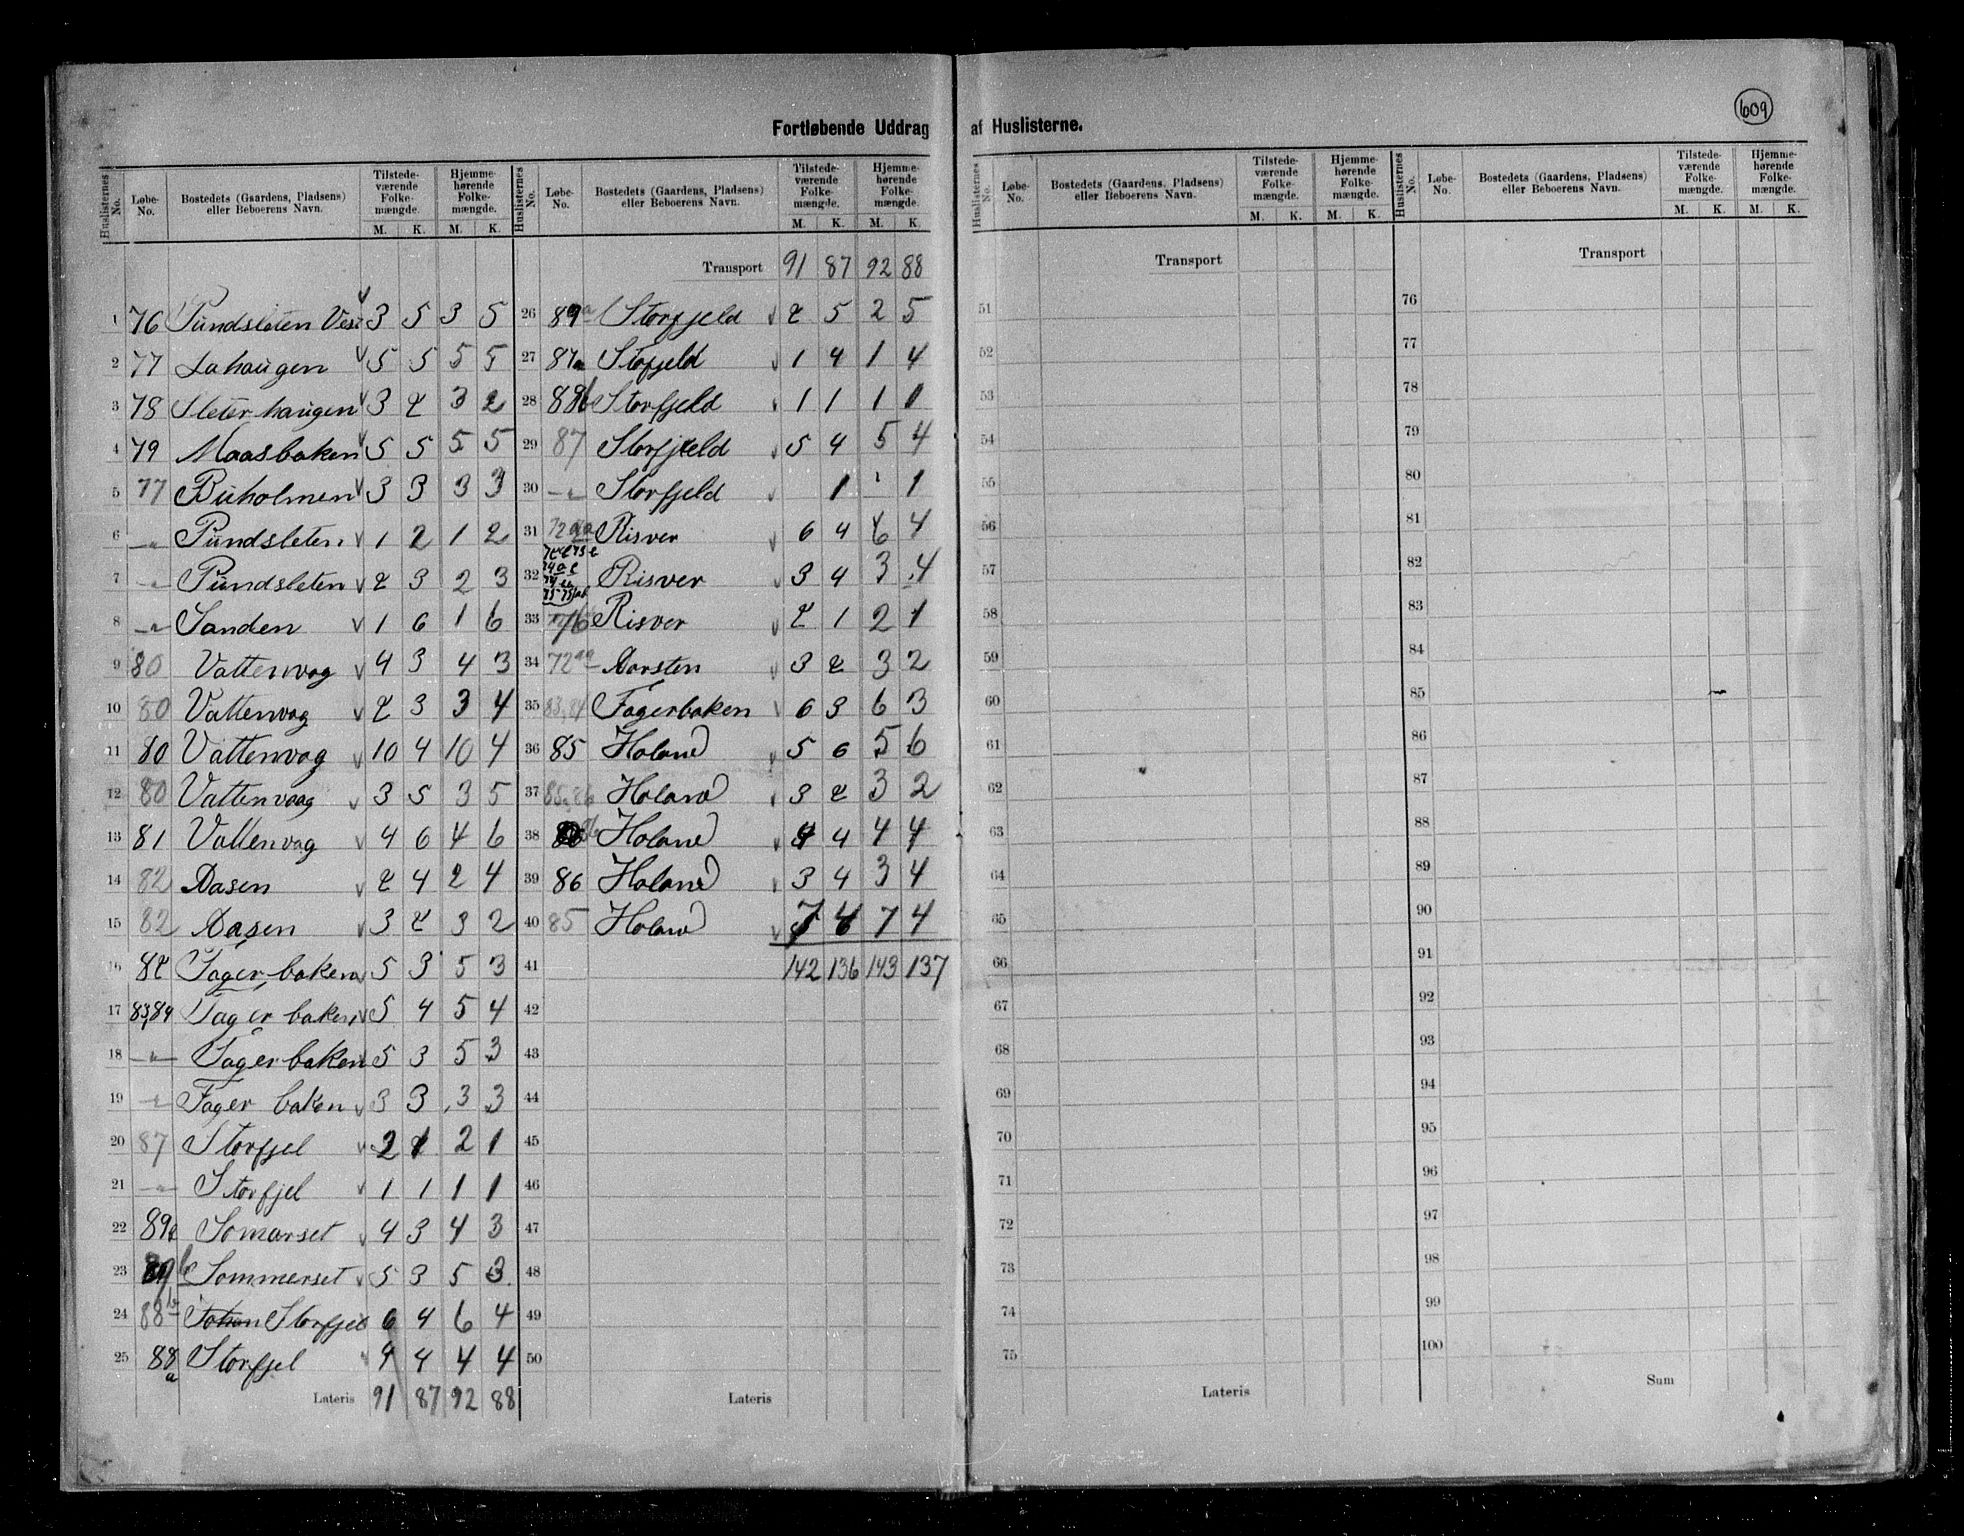 609
Fortløbende Uddrag af Huslisterne.
Huslisternes No. Løbe-No. Bostedets (Gaardens, Pladsens) eller Beboerens Navn. Tilstedeværende Folkemængde. M. K. Hjemmehørende Folkemængde. M. K.
1 76 Pundsleten Vest 3 5 3 5
2 77 Lahaugen 5 5 5 5
3 78 Sleterhaugen 3 2 3 2
4 79 Maasbaken 5 5 5 5
5 77 Buholmen 3 3 3 3
6 —"— Pundsleten 1 2 1 2
7 —"— Pundsleten 2 3 2 3
8 —"— Sanden 1 6 1 6
9 80 Vattenvag 4 3 4 3
10 80 Vattenvag 2 3 3 4
11 80 Vattenvag 10 4 10 4
12 80 Vattenvaag 3 5 3 5
13 81 Vattenvag 4 6 4 6
14 82 Aasen 2 4 2 4
15 82 Aasen 3 2 3 2
16 82 Fagerbaken 5 3 5 3
17 83,84 Fagerbaken 5 4 5 4
18 —"— Fagerbaken 5 3 5 3
19 —"— Fagerbaken 3 3 3 3
20 87 Storfjel 2 1 2 1
21 —"— Storfjel 1 1 1 1
22 89 Somarset 4 3 4 3
23 89b Sommerset 5 3 5 3
24 88b Johan Storfjel 6 4 6 4
25 88a Storfjel 4 4 4 4
Lateris 91 87 92 88
Huslisternes No. Løbe-No. Bostedets (Gaardens, Pladsens) eller Beboerens Navn. Tilstedeværende Folkemængde. M. K. Hjemmehørende Folkemængde. M. K.
Transport 91 87 92 88
26 89a Storfjeld 2 5 2 5
27 87a Stofjeld 1 4 1 4
28 88b Storfjeld 1 1 1 1
29 87 Storfjeld 5 4 5 4
30 —"— Storfjeld 1 1
31 72 Risver 6 4 6 4
32 Risver 3 4 3 4
33 76 Risver 2 1 2 1
34 72 Aorsten 3 2 3 2
35 83,84 Fagerbaken 6 3 6 3
36 85 Holand 5 6 5 6
37 85,86 Holand 3 2 3 2
38 86 Holand 4 4 4 4
39 86 Holand 3 4 3 4
40 85 Holand 7 4 7 4
41 142 136 143 137
42
43
44
45
46
47
48
49
50
Lateris
Huslisternes No. Løbe-No. Bostedets (Gaardens, Pladsens) eller Beboerens Navn. Tilstedeværende Folkemængde. M. K. Hjemmehørende Folkemængde. M. K.
Transport
51
52
53
54
55
56
57
58
59
60
61
62
63
64
65
66
67
68
69
70
71
72
73
74
75
Lateris
Huslisternes No. Løbe-No. Bostedets (Gaardens, Pladsens) eller Beboerens Navn. Tilstedeværende Folkemængde. M. K. Hjemmehørende Folkemængde. M. K.
Transport
76
77
78
79
80
81
82
83
84
85
86
87
88
89
90
91
92
93
94
95
96
97
98
99
100
Sum